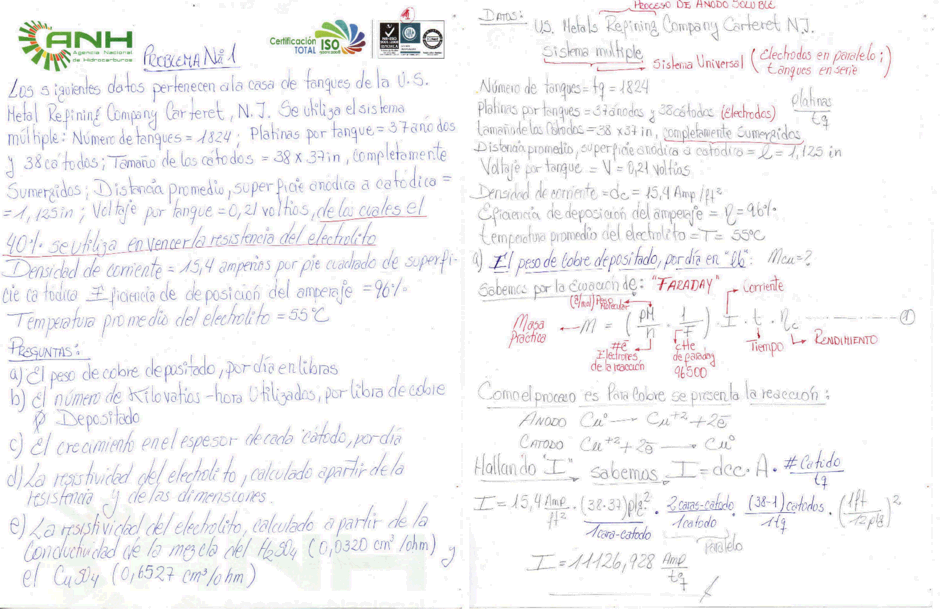 ANH
Agencia Nacional
de Hidrocarburos
Certificación
TOTAL ISO
PROBLEMA Nº 1
Los siguientes datos pertenecen a la casa de tanques de la U.S.
Metal Refining Company Carteret, N.J. Se utiliza el sistema
múltiple: Número de tanques = 1824; Platinas por tanque = 37 anodos
y 38 catodos; Tamaño de los catodos = 38 x 37 in, completamente
Sumergidos; Distancia promedio, superficie anódica a catódica =
= 1,125 in; Voltaje por tanque = 0,21 voltios, de los cuales el
40% se utiliza en vencer la resistencia del electrolito
Densidad de corriente = 15,4 amperios por pie cuadrado de superfi-
cie catódica Eficiencia de deposición del amperaje = 96%
Temperatura promedio del electrolito = 55°C
PREGUNTAS:
a) El peso de cobre depositado, por día en libras
b) El número de Kilovatios-hora Utilizados, por libra de cobre
Depositado
c) El crecimiento en el espesor de cada cátodo, por día
d) La resistividad del electrolito, calculado a partir de la
resistencia y de las dimensiones.
e) La resistividad del electrolito, calculado a partir de la
Conductividad de la mezcla del H2SO4 (0,0320 cm³/ohm) y
el CuSO4 (0,6527 cm³/ohm)
PROCESO DE ANODO SOLUBLE
DATOS: U.S. Metals Refining Company Carteret N.J.
Sistema múltiple Sistema Universal (Electrodos en paralelo; tanques en serie)
Número de tanques = tq = 1824
Platinas por tanques = 37 ánodos y 38 cátodos (Electrodos) platinas/tq
tamaño de los Catodos = 38 x 37 in, completamente Sumergidos
Distancia promedio, superficie anódica a catódica = l = 1,125 in
Voltaje por tanque = V = 0,21 voltios
Densidad de corriente = dc = 15,4 Amp/ft²
Eficiencia de deposición del amperaje = η = 96%
temperatura promedio del electrolito = T = 55°C
a) El peso de Cobre depositado, por día en "lb": Mcu = ?
Sabemos por la Ecuación de: "FARADAY" Corriente
Masa Práctica m = (pM/n · 1/F) · I · t · ηc ①
#ē Electrones de la reacción
ctte de faraday 96500
Tiempo
RENDIMIENTO
Como el proceso es Para Cobre se presenta la reacción:
ANODO Cu° → Cu⁺² + 2ē
CATODO Cu⁺² + 2ē → Cu°
Hallando "I" sabemos I = dcc · A · #Catodo/tq
I = 15,4 Amp/ft² · (38·37)plg²/1cara-catodo · 2caras-catodo/1catodo · (38-1) catodos/1tq · (1ft/12plg)²
paralelo
I = 11126,928 Amp/tq